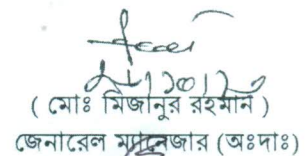 ( মোঃ মিজানুর রহমান )
জেনারেল ম্যানেজার (অঃদাঃ)